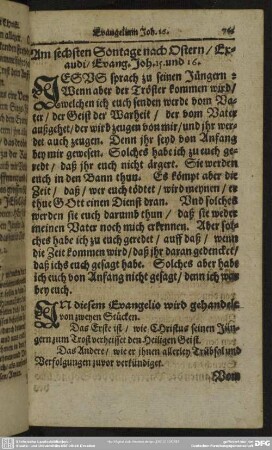 Evangelium Joh. 16.
Am sechsten Sontage nach Ostern / Ex-
audi / Evang. Joh. 15. und 16.
JESUS sprach zu seinen Jüngern:
Wenn aber der Tröster kommen wird /
welchen ich euch senden werde vom Va-
ter / der Geist der Warheit / der vom Vater
außgehet / der wird zeugen von mir / und ihr wer-
det auch zeugen. Denn ihr seyd von Anfang
bey mir gewesen. Solches hab ich zu euch ge-
redt / daß ihr euch nicht ärgert. Sie werden
euch in den Bann thun. Es kömpt aber die
Zeit / daß / wer euch tödtet / wird meynen / er
thue GOtt einen Dienst dran. Und solches
werden sie euch darumb thun / daß sie weder
meinen Vater noch mich erkennen. Aber sol-
ches habe ich zu euch geredet / auff daß / wenn
die Zeit kommen wird / daß ihr daran gedencket /
daß ichs euch gesagt habe. Solches aber habe
ich euch von Anfang nicht gesagt / denn ich war
bey euch.
IN diesem Evangelio wird gehandelt
von zweyen Stücken.
Das Erste ist / wie Christus seinen Jün-
gern zum Trost verheisset den Heiligen Geist.
Das Andere / wie er ihnen allerley Trübsal und
Verfolgungen zuvor verkündiget.
Vom